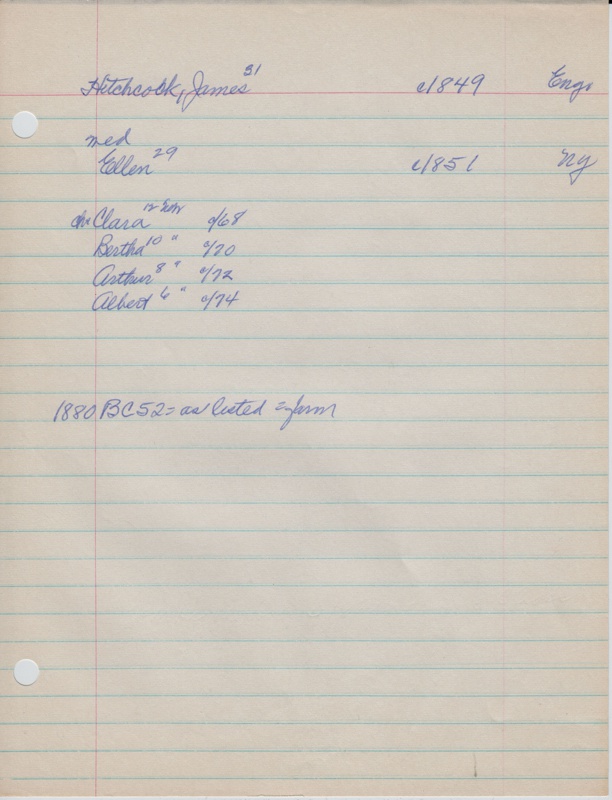 Hitchcock, James 31 c/1849 Eng.
med
Ellen 29 c/1851 Ny
ch. Clara 12 c/68
Bertha 10 " c/70
Arthur 8 " c/72
Albert 6 " c/74
1880 BC52 = as listed = farm